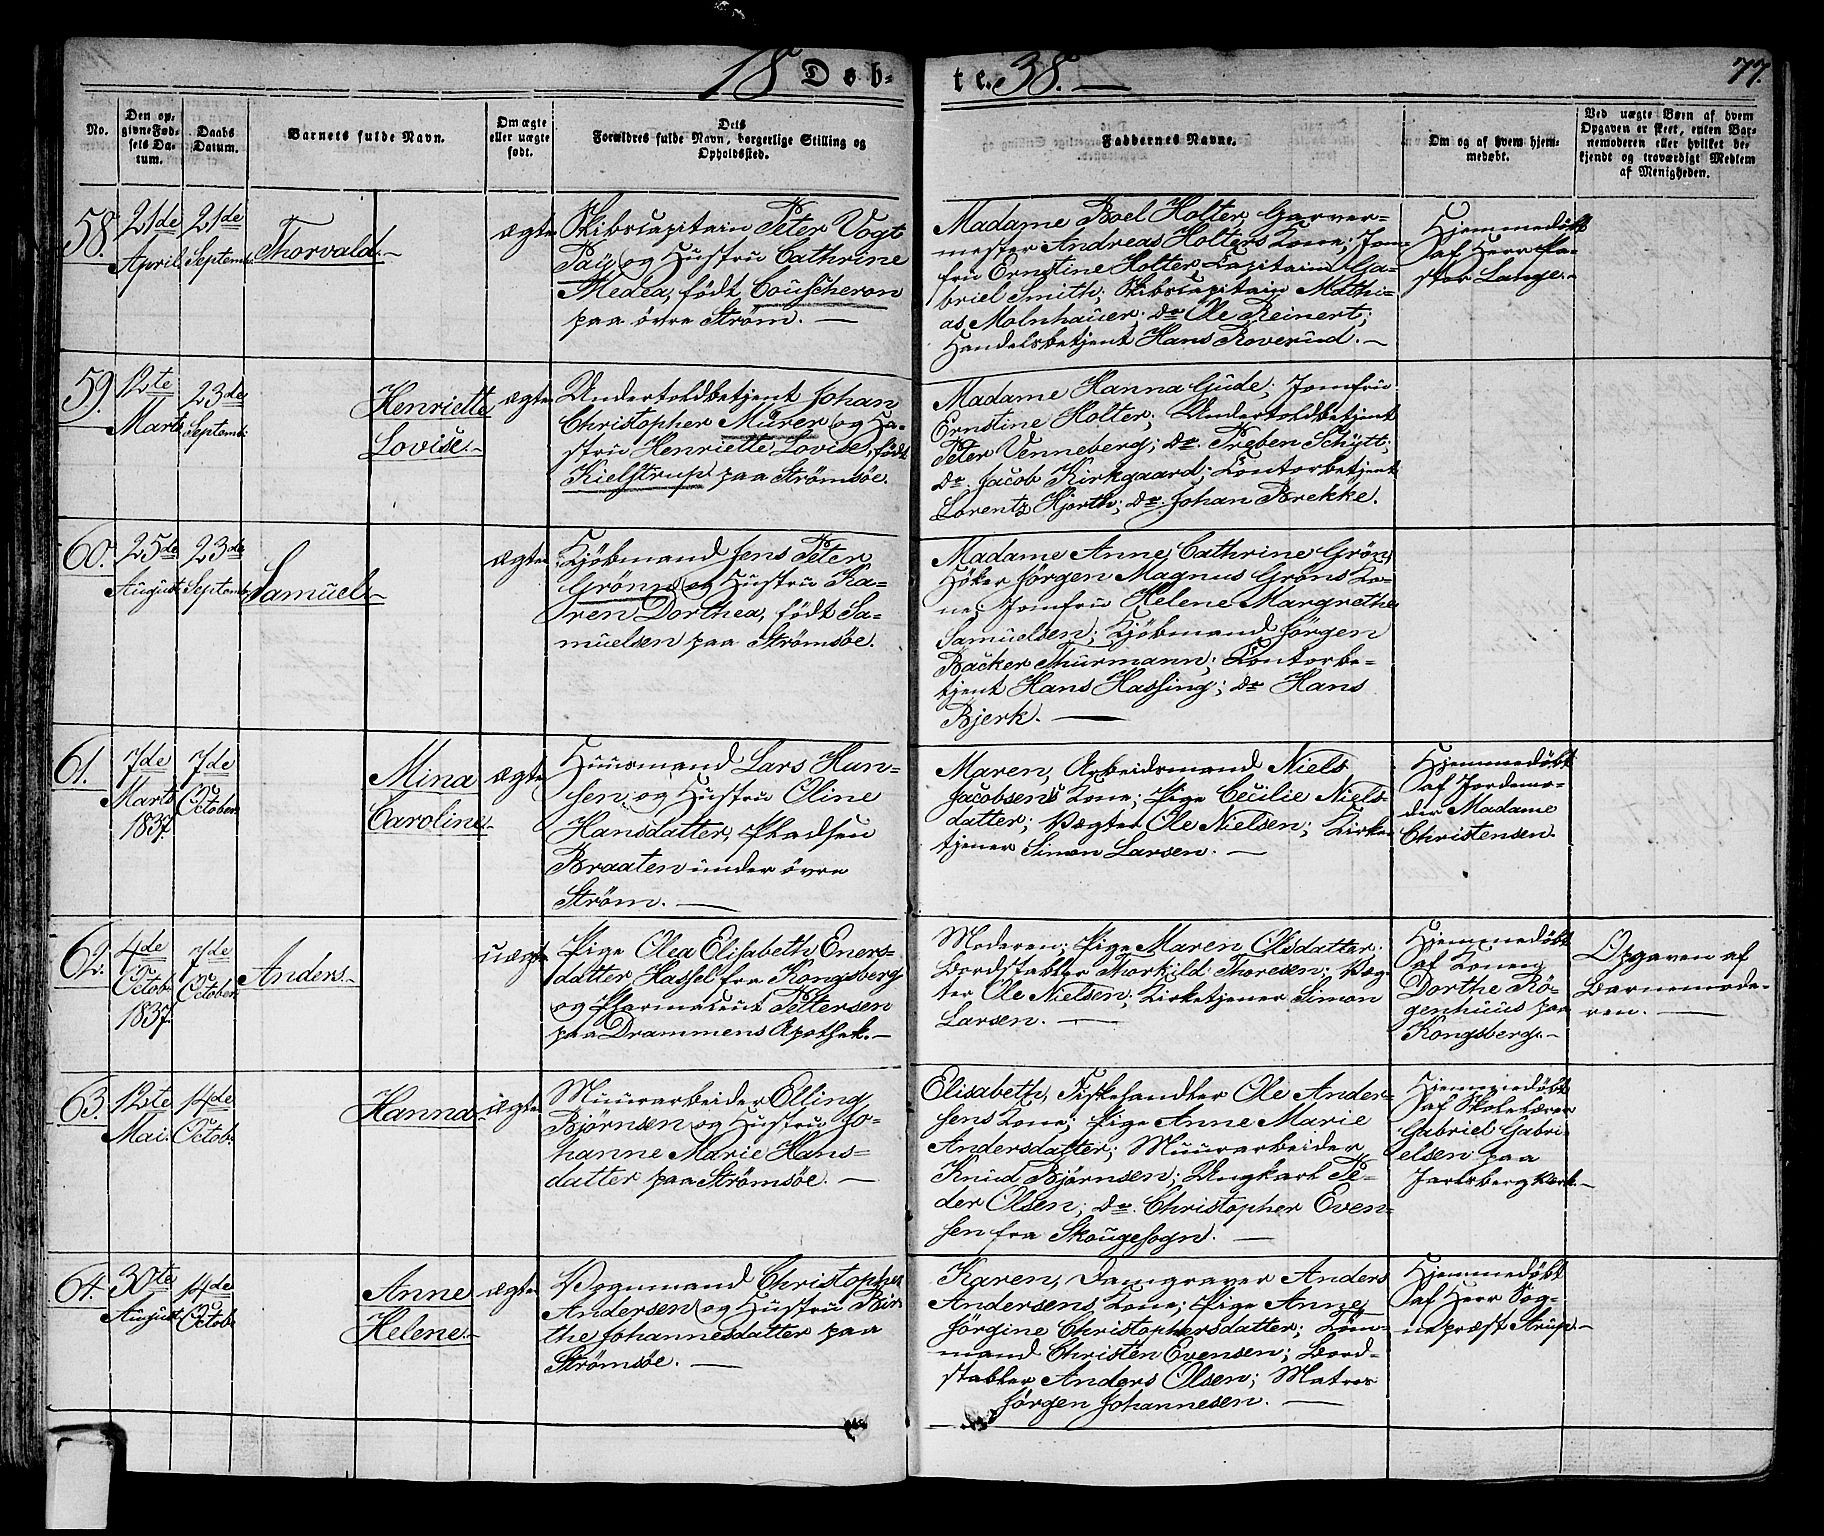 18 Döb-
te. 38.
77.
No.
Den op-
givne Fød-
sels Da-
tum.
Daabs
Datum.
Barnets fulde Navn.
Om ægte
eller uægte
født.
Dets
Forældres fulde Navn, borgerlige Stilling og
Opholdssted.
Faddernes Navne.
Om og af hvem hjem-
medøbt.
Ved uægte Børn af hvem
Opgaven er skeet, enten Bar-
nemoderen eller hvilket be-
kjendt og troværdigt Medlem
af Menigheden.
58.
21de
April.
21de
Septemb.
Thorvald.-
ægte
Skibscapitain Peter Vogt
Paij og Hustru Cathrine
Medea, født Couscheron
paa övre Strøm. —
Madame Boel Holter, Garver-
mester Andreas Holters Kone; Jom-
fru Ernstine Holter; Capitain Ga-
briel Smith; Skibscapitain Mathi-
as Molnhauer; do Ole Reinert;
Handelsbetjent Hans Roverud. -
Hjemmedøbt
af Herr Pa-
stor Lange.-
59.
12te
Marts
23de
Septemb.
Henriette
Lovise.-
ægte
Undertoldbetjent Johan
Christopher Mürer og Hu-
stru Henriette Lovise, født
Kielstrup paa Strømsøe.
Madame Hanna Gude; Jomfru
Ernstine Holter; Undertoldbetjent
Peter Venneberg; do. Preben Schytt;
do. Jacob Kirkgaard; Contorbetjent
Lorentz Hjorth; do. Johan Brekke.
60.
25de
August
23de
Septemb.
Samuel.-
ægte
Kjöbmand Jens Peter
Grøn og Hustru Ka-
ren Dorthea, født Sa-
muelsen paa Strømsøe.
Madame Anne Cathrine Grøn,
Høker Jørgen Magnus Grøns Ko-
ne; Jomfru Helene Margrethe
Samuelsen; Kjöbmand Jørgen
Backer Thurmann; Contorbe-
tjent Hans Hassing; do Hans
Bjerk. —
61.
7de
Marts
1837.
7de
October.
Mina
Caroline.-
ægte
Huusmand Lars Han-
sen og Hustru Oline
Hansdatter, Pladsen
Braaten under övre
Strøm. —
Maren, Arbeidsmand Niels
Jacobsens Kone; Pige Cecilie Niels-
datter; Vægter Ole Nielsen; Kirke-
tjener Simon Larsen. —
Hjemmedøbt
af Jordemo-
der Madame
Christensen.
62.
4de
Octob.
1837.
7de
October.
Anders.-
uægte
Pige Olea Elisabeth Eners-
datter Hassel fra Kongsberg
og Pharmaceut Pettersen
paa Drammens Apothek.-
Moderen; Pige Maren Olsdatter;
Bordstabler Thorkild Thoresen; Væg-
ter Ole Nielsen; Kirketjener Simon
Larsen. —
Hjemmedøbt
af Konen
Dorthe Rø-
genhuus paa
Kongsberg.-
Opgaven af
Barnemode-
ren. —
63.
12te
Mai.
14de
Octob.
Hanna.-
ægte
Muurarbeider Elling
Bjørnsen og Hustru Jo-
hanne Marie Hans-
datter paa Strømsøe. —
Elisabeth, Fiskehandler Ole Ander-
sens Kone; Pige Anne Marie
Andersdatter; Muurarbeider
Knud Bjørnsen; Ungkarl Pe-
der Olsen; do. Christopher Even-
sen fra Skougesogn. —
Hjemmedøbt
af Skolelærer
Gabriel Gabri-
elsen paa
Jarlsberg Værk.-
64.
30te
August
14de
Octob.
Anne
Helene.-
ægte
Vognmand Christopher
Andersen og Hustru Bir-
the Johannesdatter paa
Strømsøe. —
Karen, Damgraver Anders
Andersens Kone; Pige Anne
Jörgine Christophersdatter; Tøm-
mand Christen Evensen; Bord-
stabler Anders Olsen; Matros
Jørgen Johannesen. —
Hjemmedøbt
af Herr Sog-
nepræst Strup.-